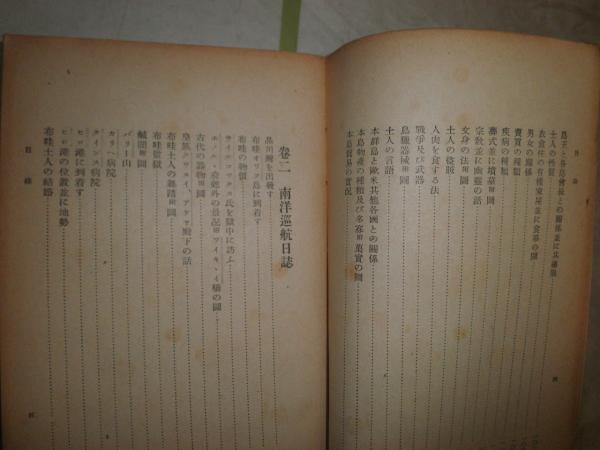 目錄
島王と各島酋長との關係並に其權限
土人の性質
衣食住の有樣家屋並に食事の圖
男女の關係
賣買の種類
疾病の種類
葬式並に墳墓附圖
宗敎並に幽靈の話
文身の法附圖
土人の盜賊
人肉を食する法
戰爭及び武器
島職器械附圖
土人の言語
本群島と歐米其他各國との關係
本島物產の種類及び多寡附菓實の圖
本島貿易の實況
四
卷二 南洋巡航日誌
品川灣を出發す
布哇オワフ島に到着す
布哇の物價
氏を獄中に訪ふ
ホノルヽ府郊外の景記附ワイキヽイ橋の圖
古代の器物附圖
皇族クロスイ、アケヤ殿下の話
布哇土人の舞踏附圖
布哇監獄
鹹湖附圖
パリー山
カリヘ病院
クインス病院
ヒロ港に到着す
ヒロ港の位置並に地勢
布哇土人の結婚
目錄
五